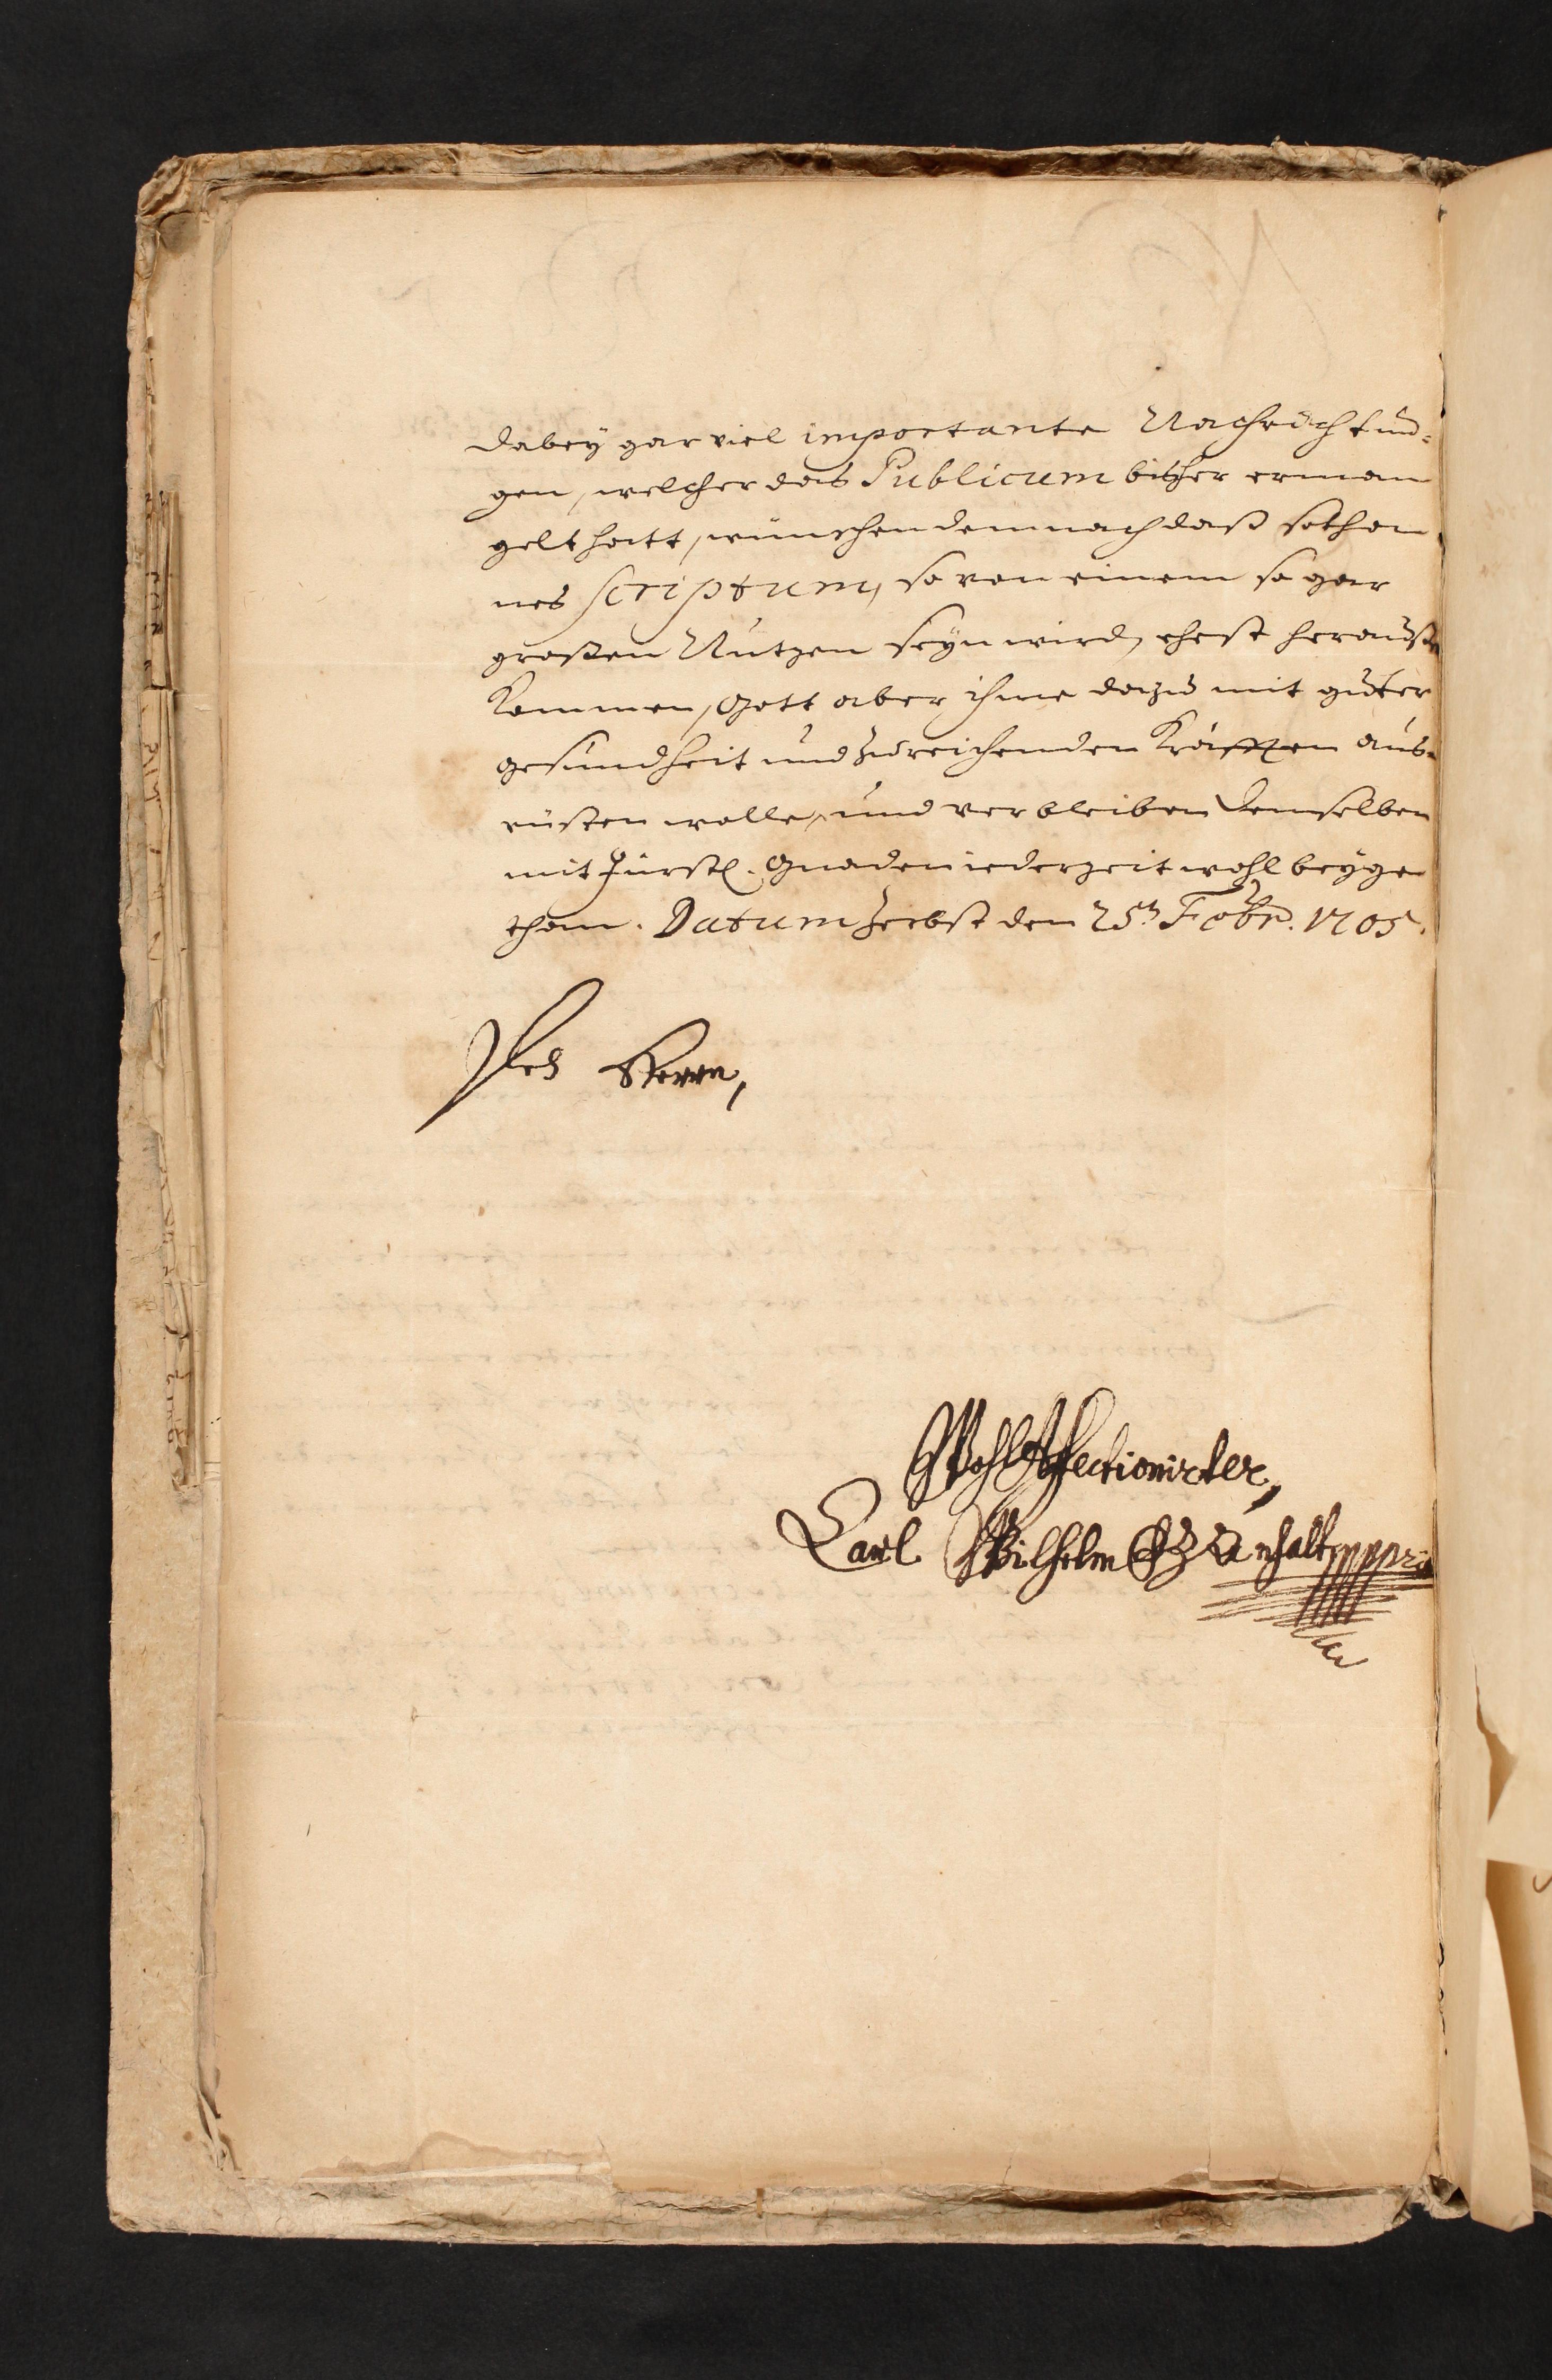 dabeÿ gar viel importante Nachricht und=
gen, welcher das Publicum bißher erman
gelt hatt, wünschen demnach daß sothan
nes scriptum, so von einem so gar
großen Nutzen seÿn wird, ehest herauß
kommen, Gott aber ihme dazu mit guter
gesundheit und zureichenden Kräfften aus=
rüsten wolle, und verbleiben demselben
mit Fürstl. Gnaden iederzeit wohl beÿge
than. Datum Zerbst den 25t Febr. 1705.
Des Herrn,
Wohl Affectionirter,
Carl Wilhelm F Z Anhalt mppria